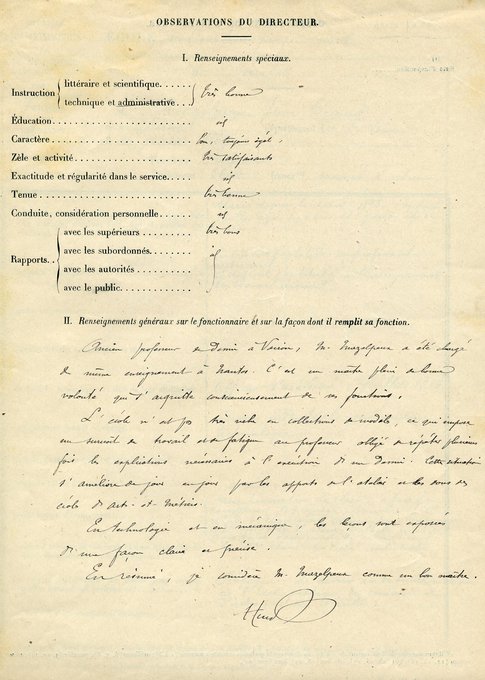 OBSERVATIONS DU DIRECTEUR.
I. Renseignements spéciaux.
Instruction
littéraire et scientifique.
technique et administrative..
très bonne
Éducation.................... id
Caractère.................... bon, toujours égal.
Zèle et activité................ très satisfaisants
Exactitude et régularité dans le service..... id
Tenue....................... très bonne
Conduite, considération personnelle...... id
Rapports..
avec les supérieurs........ très bons
avec les subordonnés.......
avec les autorités.........
avec le public............
id
II. Renseignements généraux sur le fonctionnaire et sur la façon dont il remplit sa fonction.
Ancien professeur de Dessin à Voiron, M. Mazelpeux a été chargé
du même enseignement à Nantes. C'est un maître plein de bonne
volonté qui s'acquitte consciencieusement de ses fonctions.
L'école n'est pas très riche en collections de modèle, ce qui impose
un surcroît de travail et de fatigue au professeur obligé de répéter plusieurs
fois les explications nécessaires à l'exécution d'un Dessin. Cette situation
s'améliore de jour en jour par les apports de l'atelier et les dons des
écoles d'Arts et Métiers.
En technologie et en mécanique, les leçons sont exposées
d'une façon claire et précise.
En résumé, je considère M. Mazelpeux comme un bon maître.